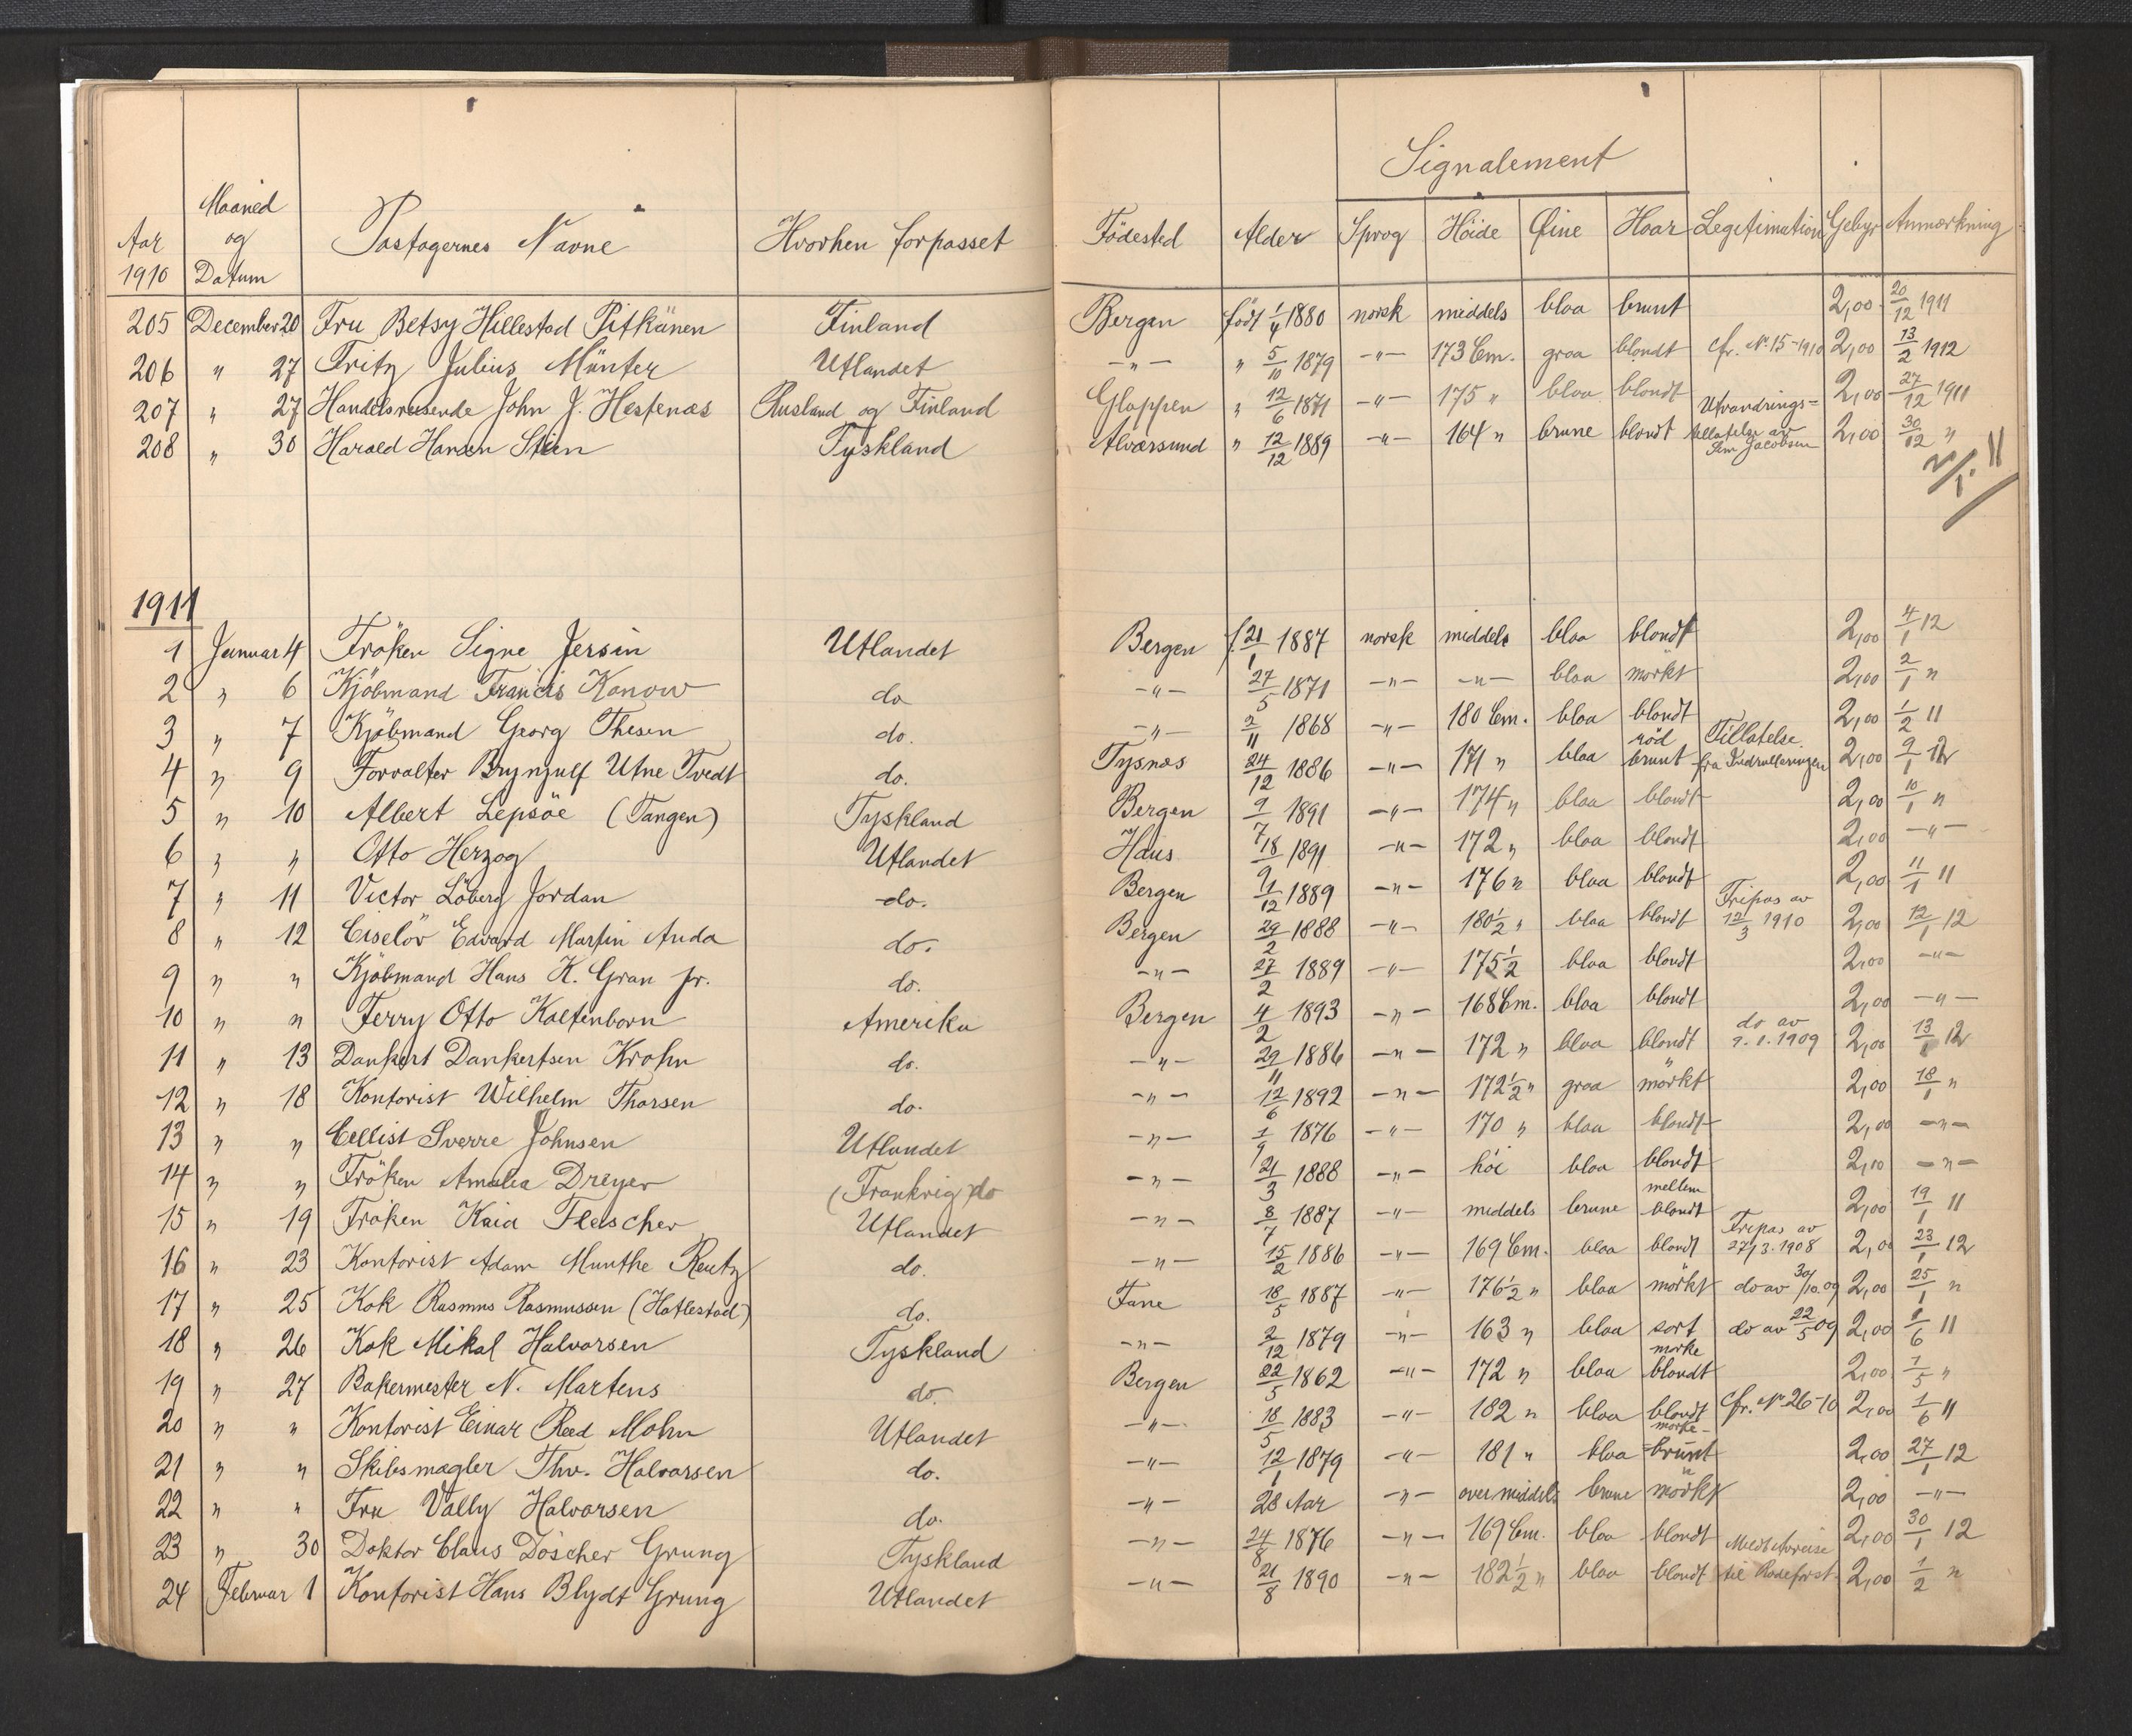 Signalement
Aar 1910 Maaned og Datum Pastagernes Navne Hvorhen forpasset Födested Alder Sprog Höide Øine Haar Legitimation Gebyr Anmærkning
205 December 20 Fru Betsy Hillestad Pitkänen Finland Bergen født 1/4 1880 norsk middels blaa brunt 2,00 20/12 1911
206 " 27 Fritz Julius Münter Utlandet -"- " 5/10 1879 -"- 173 Cm. graa blondt cfr. No 15-1910 2,00 13/2 1912
207 " 27 Handelsreisende John J. Hestenæs Rusland og Finland Gloppen " 12/6 1871 -"- 175 " blaa blondt 2,00 27/12 1911
208 " 30 Harald Hansen Stien Tyskland Alværsund " 12/12 1889 -"- 164 " brune blondt Utvandrings= tillatelse av Sem Jacobsen 2,00 30/12 "
2/1. 11
1911
1 Januar 4 Fröken Signe Jersin Utlandet Bergen f. 21/1 1887 norsk middels blaa blondt 2,00 4/1 12
2 " 6 Kjöbmand Francis Konow do -"- 27/5 1871 -"- -"- blaa mörkt 2,00 2/1 "
3 " 7 Kjöbmand Georg Thesen do. -"- 2/11 1868 -"- 180 Cm. blaa blondt 2,00 1/2 11
4 " 9 Forvalter Brynjulf Utne Tvedt do. Tysnæs 24/12 1886 -"- 171 " blaa röd brunt Tillatelse fra Indrulleringen 2,00 9/1 12
5 " 10 Albert Lepsöe (Tangen) Tyskland Bergen 9/7 1891 -"- 174 " blaa blondt 2,00 10/1 "
6 " " Otto Herzog Utlandet Haus 18/9 1891 -"- 172 " blaa blondt 2,00 -"-
7 " 11 Victor Löberg Jordan do. Bergen 1/12 1889 -"- 176 " blaa blondt 2,00 11/1 11
8 " 12 Ciselör Edvard Martin Anda do. Bergen 29/2 1888 -"- 180 1/2 " blaa blondt Fripas av 12/3 1910 2,00 12/1 12
9 " " Kjöbmand Hans K. Gran jr. do. -"- 27/2 1889 -"- 175 1/2 blaa blondt 2,00 -"-
10 " " Ferry Otto Kaltenborn Amerika Bergen 4/2 1893 -"- 168 Cm. blaa blondt 2,00 -"-
11 " 13 Dankert Dankertsen Krohn do. -"- 29/11 1886 -"- 172 " blaa blondt do av 9.1.1909 2,00 13/1 12
12 " 18 Kontorist Wilhelm Thorsen do. -"- 12/6 1892 -"- 172 1/2 " graa mörkt 2,00 18/1 "
13 " " Cellist Sverre Johnsen Utlandet -"- 1/9 1876 -"- 170 " blaa blondt 2,00 -"-
14 " " Fröken Amalia Dreyer (Frankrig) do -"- 21/3 1888 -"- höi blaa blondt 2,00 -"-
15 " 19 Fröken Kaia Fleischer Utlandet -"- 8/7 1887 -"- middels brune mellem blondt 2,00 19/1 11
16 " 23 Kontorist Adam Munthe Reutz do. -"- 15/2 1886 -"- 169 Cm. blaa blondt Fripas av 27/3.1908 2,00 23/1 12
17 " 25 Kok Rasmus Rasmussen (Hatlestad) do. Fane 18/5 1887 -"- 176 1/2 " blaa mörkt do av 30/10.09 2,00 25/1 "
18 " 26 Kok Mikal Halvorsen Tyskland -"- 2/12 1879 -"- 163 " blaa sort do av 22/5 09 2,00 6 11
19 " 27 Bakermester N. Martens do. Bergen 22/5 1862 -"- 172 " blaa mörke blondt 2,00 1/5 "
20 " " Kontorist Einar Reed Mohn Utlandet -"- 18/5 1883 -"- 182 " blaa blondt cfr. No 26-10 2,00 1/6 11
21 " " Skibsmægler Thv. Halvorsen do. -"- 12/1 1879 -"- 181 " blaa mörke- brunt 2,00 27/1 12
22 " " Fru Vally Halvorsen do. -"- 28 Aar -"- over middels brune mörkt 2,00 -"-
23 " 30 Doktor Claus Döscher Grung Tyskland -"- 24/8 1876 -"- 169 Cm. blaa blondt 2,00 30/1 12
24 Februar 1 Kontorist Hans Blydt Grung Utlandet -"- 21/8 1890 -"- 182 1/2 " blaa blondt til 2,00 1/2 "